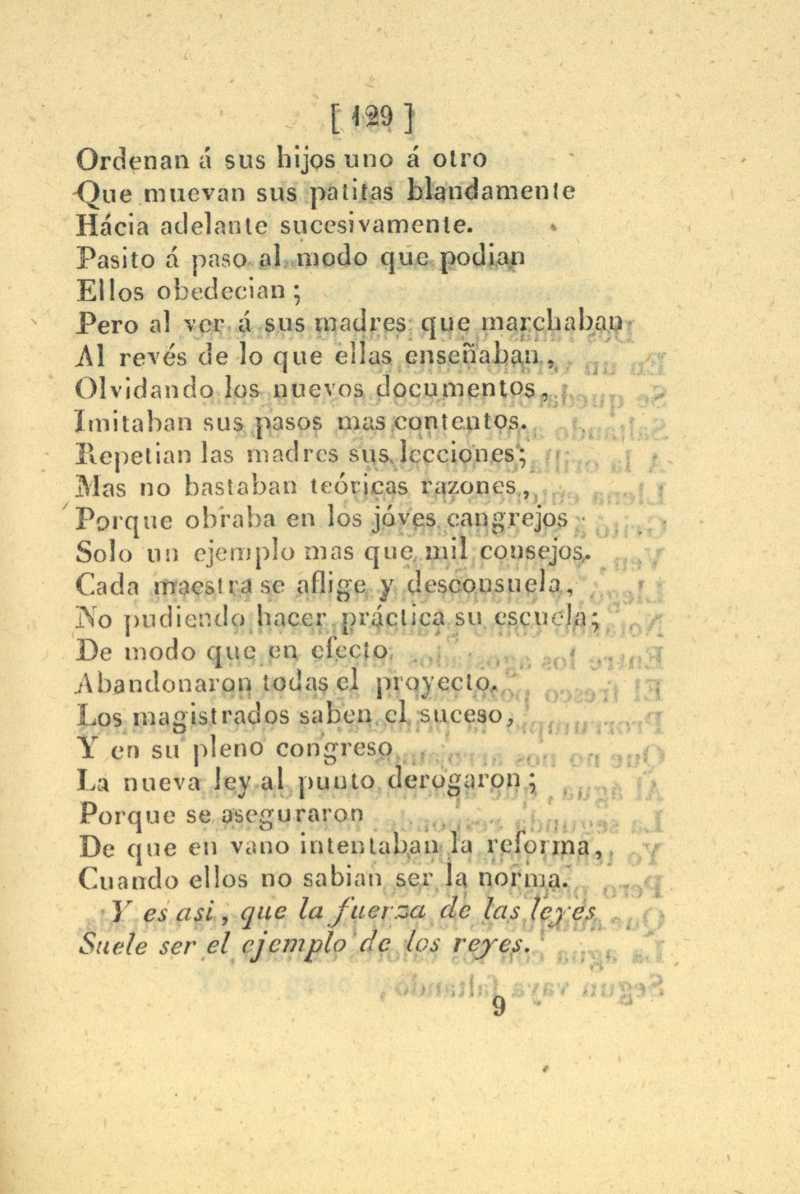 [ 129 ]
Ordenan á sus hijos uno á otro
Que muevan sus patitas blandamente
Hácia adelante sucesivamente.
Pasito á paso al modo que podian
Ellos obedecian ;
Pero al ver á sus madres que marchaban
Al revés de lo que ellas enseñaban ,
Olvidando los nuevos documentos,
Imitaban sus pasos mas contentos.
Repetian las madres sus lecciones;
Mas no bastaban teóricas razones,
Porque obraba en los jóves cangrejos
Solo un ejemplo mas que mil consejos.
Cada maestra se aflige y desconsuela,
No pudiendo hacer práctica su escuela;
De modo que en efecto
Abandonaron todas el proyecto.
Los magistrados saben el suceso,
Y en su pleno congreso
La nueva ley al punto derogaron ;
Porque se aseguraron
De que en vano intentaban la reforma,
Cuando ellos no sabian ser la norma.
Y es asi, que la fuerza de las leyes
Suele ser el ejemplo de los reyes.
9